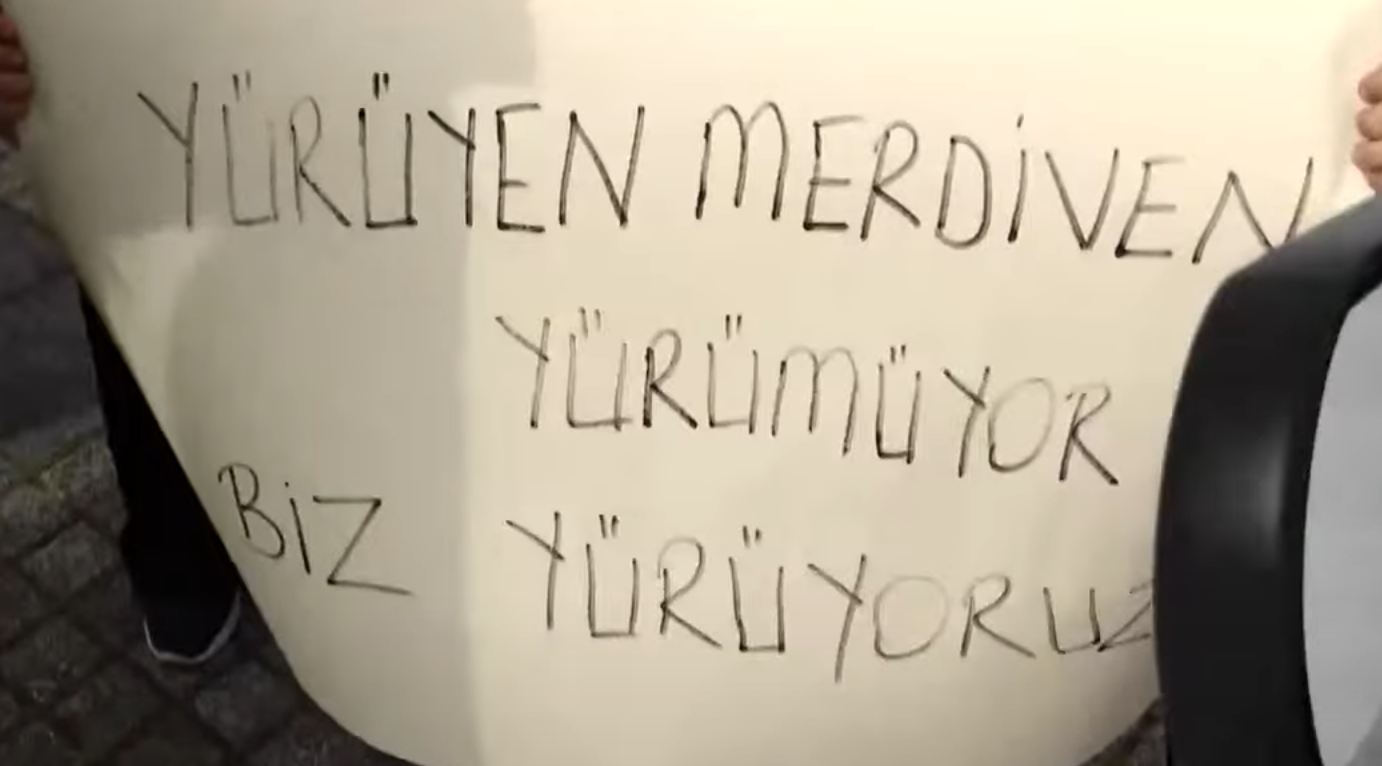 YÜRÜYEN MERDİVEN
YÜRÜMÜYOR
BİZ YÜRÜYORUZ